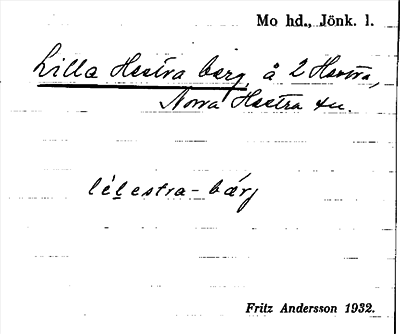 Mo hd., Jönk. l.
Lilla Hestra berg, å 2 Hestra,
Norra Hestra sn.
lélestra-bærj
Fritz Andersson 1932.